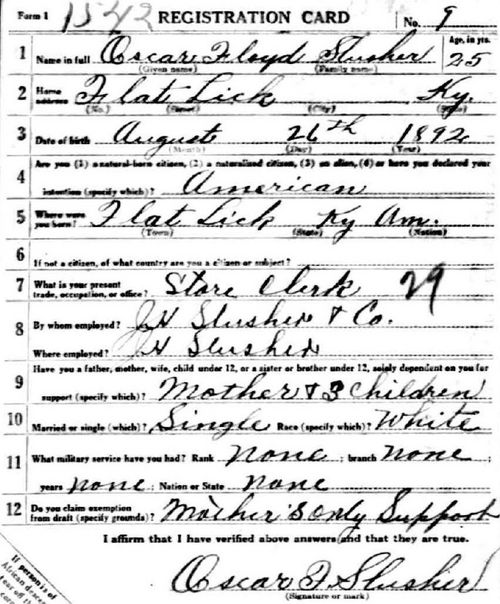 Form 1 1542 REGISTRATION CARD No. 9
1 Name in full Oscar Floyd Slusher Age, in yrs. 25
(Given name) (Family name)
2 Home address Flat Lick Ky.
(No.) (Street) (City) (State)
3 Date of birth August 26th 1892
(Month) (Day) (Year)
Are you (1) a natural-born citizen, (2) a naturalized citizen, (3) an alien, (4) or have you declared your
4 intention (specify which)? American
5 Where were you born? Flat Lick Ky Am.
(Town) (State) (Nation)
6 If not a citizen, of what country are you a citizen or subject?
7 What is your present trade, occupation, or office? Store Clerk 29
8 By whom employed? J H Slusher & Co.
Where employed? J H Slusher
9 Have you a father, mother, wife, child under 12, or a sister or brother under 12, solely dependent on you for
support (specify which)? Mother & 3 Children
10 Married or single (which)? Single Race (specify which)? White
11 What military service have you had? Rank None ; branch None ;
years None ; Nation or State None
12 Do you claim exemption from draft (specify grounds)? Mother's Only Support
I affirm that I have verified above answers and that they are true.
Oscar F. Slusher
(Signature or mark)
If person is of
African
tear off